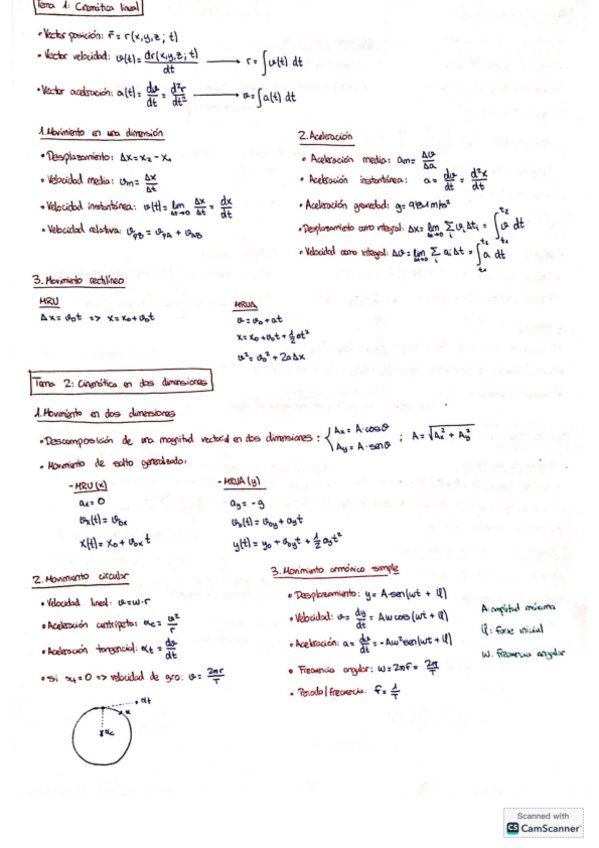 Tema 1: Cinemática lineal
• Vector posición: r̄ = r(x,y,z; t)
• Vector velocidad: v(t) = dr(x,y,z; t)/dt → r = ∫v(t) dt
• Vector aceleración: a(t) = dv/dt = d²r/dt² → v = ∫a(t) dt
1. Movimiento en una dimensión
• Desplazamiento: Δx = x₂ - x₁
• Velocidad media: vm = Δx/Δt
• Velocidad instantánea: v(t) = lim Δt→0 Δx/Δt = dx/dt
• Velocidad relativa: v_PB = v_PA + v_AB
2. Aceleración
• Aceleración media: am = Δv/Δa
• Aceleración instantánea: a = dv/dt = d²x/dt²
• Aceleración gravedad: g = 9'81 m/s²
• Desplazamiento como integral: Δx = lim Δt→0 Σ vᵢ Δtᵢ = ∫ v dt
• Velocidad como integral: Δv = lim Δt→0 Σ aᵢ Δt = ∫ a dt
3. Movimiento rectilíneo
MRU
Δx = v₀t => x = x₀ + v₀t
MRUA
v = v₀ + at
x = x₀ + v₀t + ½at²
v² = v₀² + 2aΔx
Tema 2: Cinemática en dos dimensiones
1. Movimiento en dos dimensiones
• Descomposición de una magnitud vectorial en dos dimensiones: { Ax = A·cosθ ; A = √(Ax² + Ay²)
Ay = A·senθ
• Movimiento de salto generalizado:
- MRU (x)
ax = 0
vx(t) = v₀x
x(t) = x₀ + v₀x t
- MRUA (y)
ay = -g
vy(t) = v₀y + ay t
y(t) = y₀ + v₀y t + ½ ay t²
2. Movimiento circular
• Velocidad lineal: v = ω·r
• Aceleración centrípeta: αc = v²/r
• Aceleración tangencial: αt = dv/dt
• Si αt = 0 => velocidad de giro: v = 2πr/T
αt
α
αc
3. Movimiento armónico simple
• Desplazamiento: y = A·sen(ωt + φ)
• Velocidad: v = dy/dt = Aω cos(ωt + φ)
• Aceleración: a = dv/dt = -Aω² sen(ωt + φ)
• Frecuencia angular: ω = 2πf = 2π/T
• Periodo/frecuencia: f = 1/T
A: amplitud máxima
φ: fase inicial
ω: frecuencia angular
Scanned with
CS CamScanner